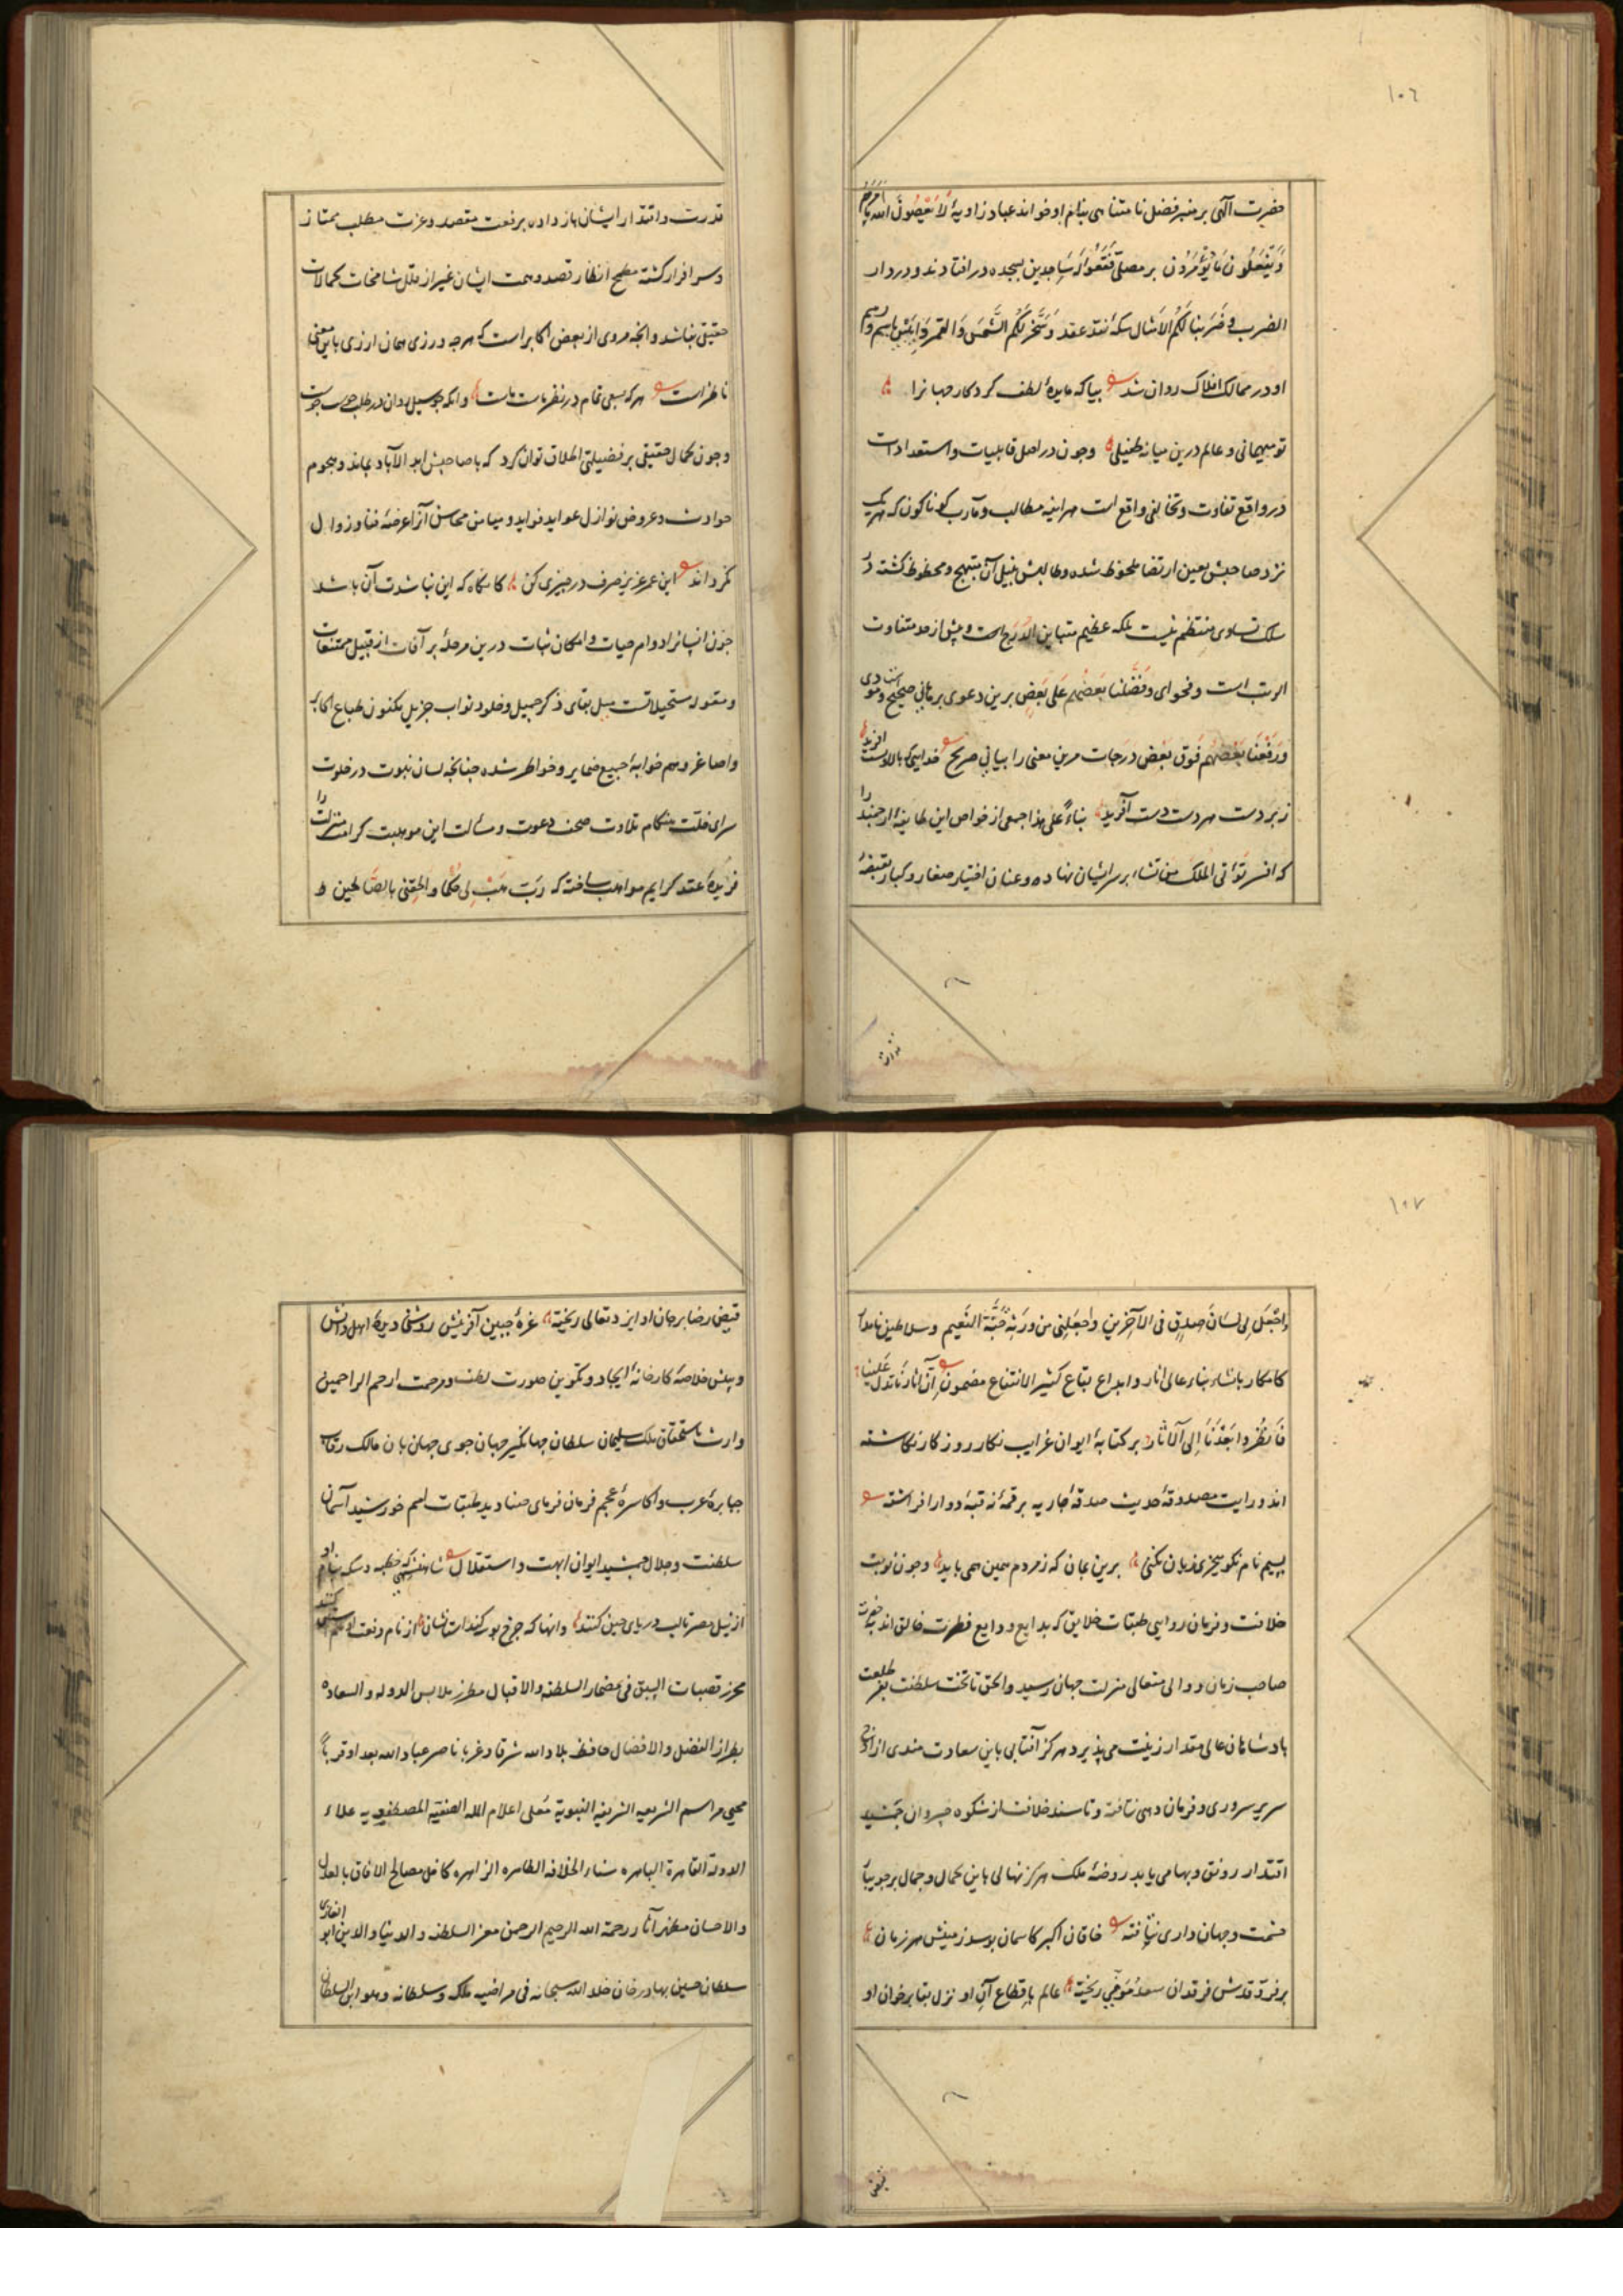 ١٠٦
حضرت الهی بر منبر فضل نامتناهی بنام او خواند عباد زاویهٔ لا یعصون الله ما امرهم
و یفعلون ما یؤمرون بر مصلی فقعوا له ساجدین بسجده در افتادند و در دار
الضرب و ضربنا لکم الامثال سکهٔ نقد عقد و سخر لکم الشمس و القمر دائبین باسم و رسم
او در ممالک افلاک روان شد بیا که مایدهٔ لطف کردکار جهانرا
تو میهمانی و عالم درین میانه طفیلی وجون در اصل قابلیات و استعدادات
در واقع تفاوت و تخالفی واقع است هر آینه مطالب و مآرب کوناکون که هر یک
نزد صاحبش بعین ارتضا ملحوظ شده و طالبش بنیل آن مبتهج و محظوظ کشته در
سلک تساوی منتظم نیست بلکه عظیم متباین الدرج است و بیش از حد متفاوت
الرتب است و فحوای و فضلنا بعضهم علی بعض برین دعوی برهانی صحیح و مودی
و رفعنا بعضهم فوق بعض درجات مرین معنی را بیانی صریح خداییکه بالا و پست آفرید
زبر دست هر دست دست آفرید بناءً علی هذا جمعی از خواص این طایفهٔ ارجمند را
که افسر تؤتی الملک من تشاء بر سر ایشان نهاده و عنان اختیار صغار و کبار بقبضهٔ
قدرت و اقتدار ایشان باز داده برفعت مقصد و عزت مطلب ممتاز
و سرافراز کشته مطمح انظار قصد و همت ایشان غیر از قلل شامخات کمالات
حقیقی نباشد و آنجه مروی از بعض اکابر است که هرجه ورزی همان ارزی باین معنی
ناظر است هر که بسعی تمام در نظر ماست ماست وانکه جو سیل روان در طلب جوست جوست
وجون کمال حقیقی بر فضیلتی اطلاق توان کرد که با صاحبش ابد الآباد بماند و هجوم
حوادث و عروض نوازل عواید فواید و میامن محاسن آنرا عرضهٔ فنا و زوال
نکرداند این عمر عزیز صرف در جیزی کن کانکاه که این نباشدت آن باشد
جون انسانرا دوام حیات و امکان ثبات درین مرحلهٔ پر آفات از قبیل ممتنعات
و مقولهٔ مستحیلاتست میل بقای ذکر جمیل و خلود ثواب جزیل مکنون طباع اکابر
و اصاغر و هم خوابهٔ جمیع ضمایر و خواطر شده جنانجه لسان نبوت در خلوت
سرای خلت هنکام تلاوت صحف دعوت و مسألت این موهبت کرامت منزلت را
فریدهٔ عقد کرایم مواهب ساخته که رب هب لی حکما و الحقنی بالصالحین و
١٠٧
و اجعل لی لسان صدق فی الآخرین و اجعلنی من ورثة جنة النعیم و سلاطین نامدار
کامکار بانشاء بناء عالی اثار و ابداع بقاع کثیر الانتفاع مضمون ان آثارنا تدل علینا
فانظروا بعدنا الی الآثار بر کتابهٔ ایوان غرایب نکار روزکار نکاشته
اند و رایت مصدوقهٔ حدیث صدقهٔ جاریه بر قمهٔ نه قبهٔ دوار افراشته
ببیم نام نکو بیخری زیان نکنی برین بمان که ز مردم همین همی باید وجون نوبت
خلافت و فرمان روایی طبقات خلایق که بدایع ودایع فطرت خالق اند بحضرت
صاحب زمان و والی متعالی منزلت جهان رسید و الحق تا تخت سلطنت بفر طلعت
بادشاهان عالی مقدار زینت می پذیرد هرکز آفتابی باین سعادت مندی از افق
سریر سروری و فرمان دهی نتافته و تا مسند خلافت از شکوه خسروان جمشید
اقتدار رونق و بها می یابد روضهٔ ملک هرکز نهالی باین کمال و جمال بر جویبار
حشمت و جهان داری نیافته خاقان اکبر کاسمان بوسد زمینش هر زمان
بر فرق قدش فرقدان سعد موفی ریخته عالم باقطاع آن او نزل بقا بر خوان او
فیض رضا بر جان او ایزد تعالی ریخته غرهٔ جبین آفرینش روشنی دیدهٔ اهل دانش
و بینش خلاصهٔ کارخانهٔ ایجاد و تکوین صورت لطف و مرحمت ارحم الراحمین
وارث باستحقاق ملک سلیمان سلطان جهانکیر جهان جوی جهان بان مالک رقاب
جبابرهٔ عرب و اکاسرهٔ عجم فرمان فرمای صنادید طبقات امم خورشید آسمان
سلطنت و جلال جمشید ایوان ابهت و استقلال شاهنشهی که خطبه و سکه بنام او
از نیل مصر تا لب دریای جین کنند وانها که جرخ بوسه کند استانشان از نام و نعت او
محرز قصبات السبق فی مضمار السلطنه و الاقبال مطرز ملابس الدوله و السعاده
بطراز الفضل و الافضال حافظ بلاد الله شرقا و غربا ناصر عباد الله بعدا و قربا
محیی مراسم الشریعه الشریفه النبویة معلی اعلام المله الحنیفیه المصطفویه علاء
الدولة القاهرة الباهره سناء الخلافه الطاهره الزاهره کافل مصالح الافاق بالعدل
و الاحسان مظهر آثار رحمة الله الرحیم الرحمن معز السلطنه و الدنیا و الدین ابو الغازی
سلطان حسین بهادر خان خلد الله سبحانه فی مراضیه ملکه و سلطانه و هو ابن السلطان